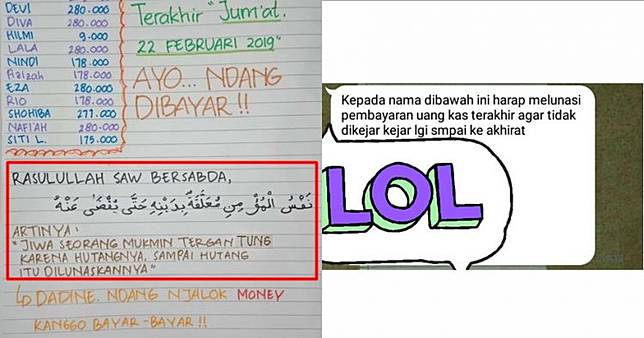 DEVI 280.000
DIVA 280.000
HILMI 9.000
LALA 280.000
NINDI 178.000
Azizah 178.000
EZA 280.000
RIO 178.000
SHOHIBA 277.000
NAFI'AH 280.000
SITI L. 175.000
Terakhir "Jum'at.
22 FEBRUARI 2019"
AYO... NDANG
DIBAYAR !!
RASULULLAH SAW BERSABDA,
نَفْسُ الْمُؤْمِنِ مُعَلَّقَةٌ بِدَيْنِهِ حَتَّى يُقْضَى عَنْهُ
ARTINYA :
"JIWA SEORANG MUKMIN TERGANTUNG
KARENA HUTANGNYA, SAMPAI HUTANG
ITU DILUNASKANNYA"
↳ DADINE. NDANG NJALOK MONEY
KANGGO BAYAR-BAYAR !!
Kepada nama dibawah ini harap melunasi
pembayaran uang kas terakhir agar tidak
dikejar kejar lgi smpai ke akhirat
LOL